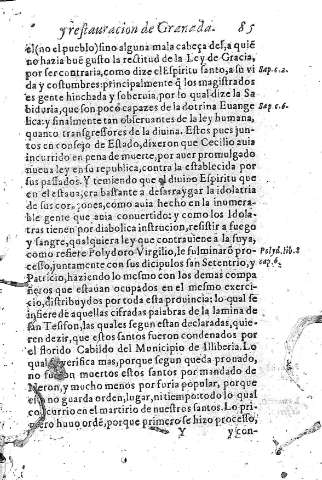 y restauracion de Granada. 85
el (no el pueblo) sino alguna mala cabeça del, a quiẽ
no hazia buẽ gusto la rectitud de la Ley de Gracia,
por ser contraria, como dize el Espiritu santo, a su vi
da y costumbres: principalmente q̃ los magistrados
es gente hinchada y soberuia, por lo qual dize la Sa
biduria, que son poco capazes de la dotrina Euange
lica: y finalmente tan obseruantes de la ley humana,
quanto transgressores de la diuina. Estos pues jun-
tos en consejo de Estado, dixeron que Cecilio auia
incurrido en pena de muerte, por auer promulgado
nueua ley en su republica, contra la establecida por
sus passados. Y temiendo que el diuino Espiritu que
en el estaua, era bastante a desarraygar la idolatria
de sus coraçones, como auia hecho en la inumera-
ble gente que auia conuertido: y como los Idola-
tras tienen por diabolica instrucion, resistir a fuego
y sangre, qualquiera ley que contrauiene a la suya,
como refiere Polydoro Virgilio, le fulminarõ pro-
cesso, juntamente con sus dicipulos san Setentrio, y
Patricio, haziendo lo mesmo con los demas compa
ñeros que estauan ocupados en el mesmo exerci-
cio, distribuydos por toda esta prouincia: lo qual se
infiere de aquellas cifradas palabras de la lamina de
san Tesifon, las quales segun estan declaradas, quie-
ren dezir, que estos santos fueron condenados por
el florido Cabildo del Municipio de Illiberia. Lo
qual verifica mas, porque segun queda prouado,
no fueron muertos estos santos por mandado de
Neron, y mucho menos por furia popular, porque
esta no guarda orden, lugar, ni tiempo: todo lo qual
concurrio en el martirio de nuestros santos. Lo pri-
mero huuo ordẽ, porque primero se hizo processo,
Y y con-
Sap. c. 2.
Sap. c. 6.
Polyd. lib. 8
cap. 6.